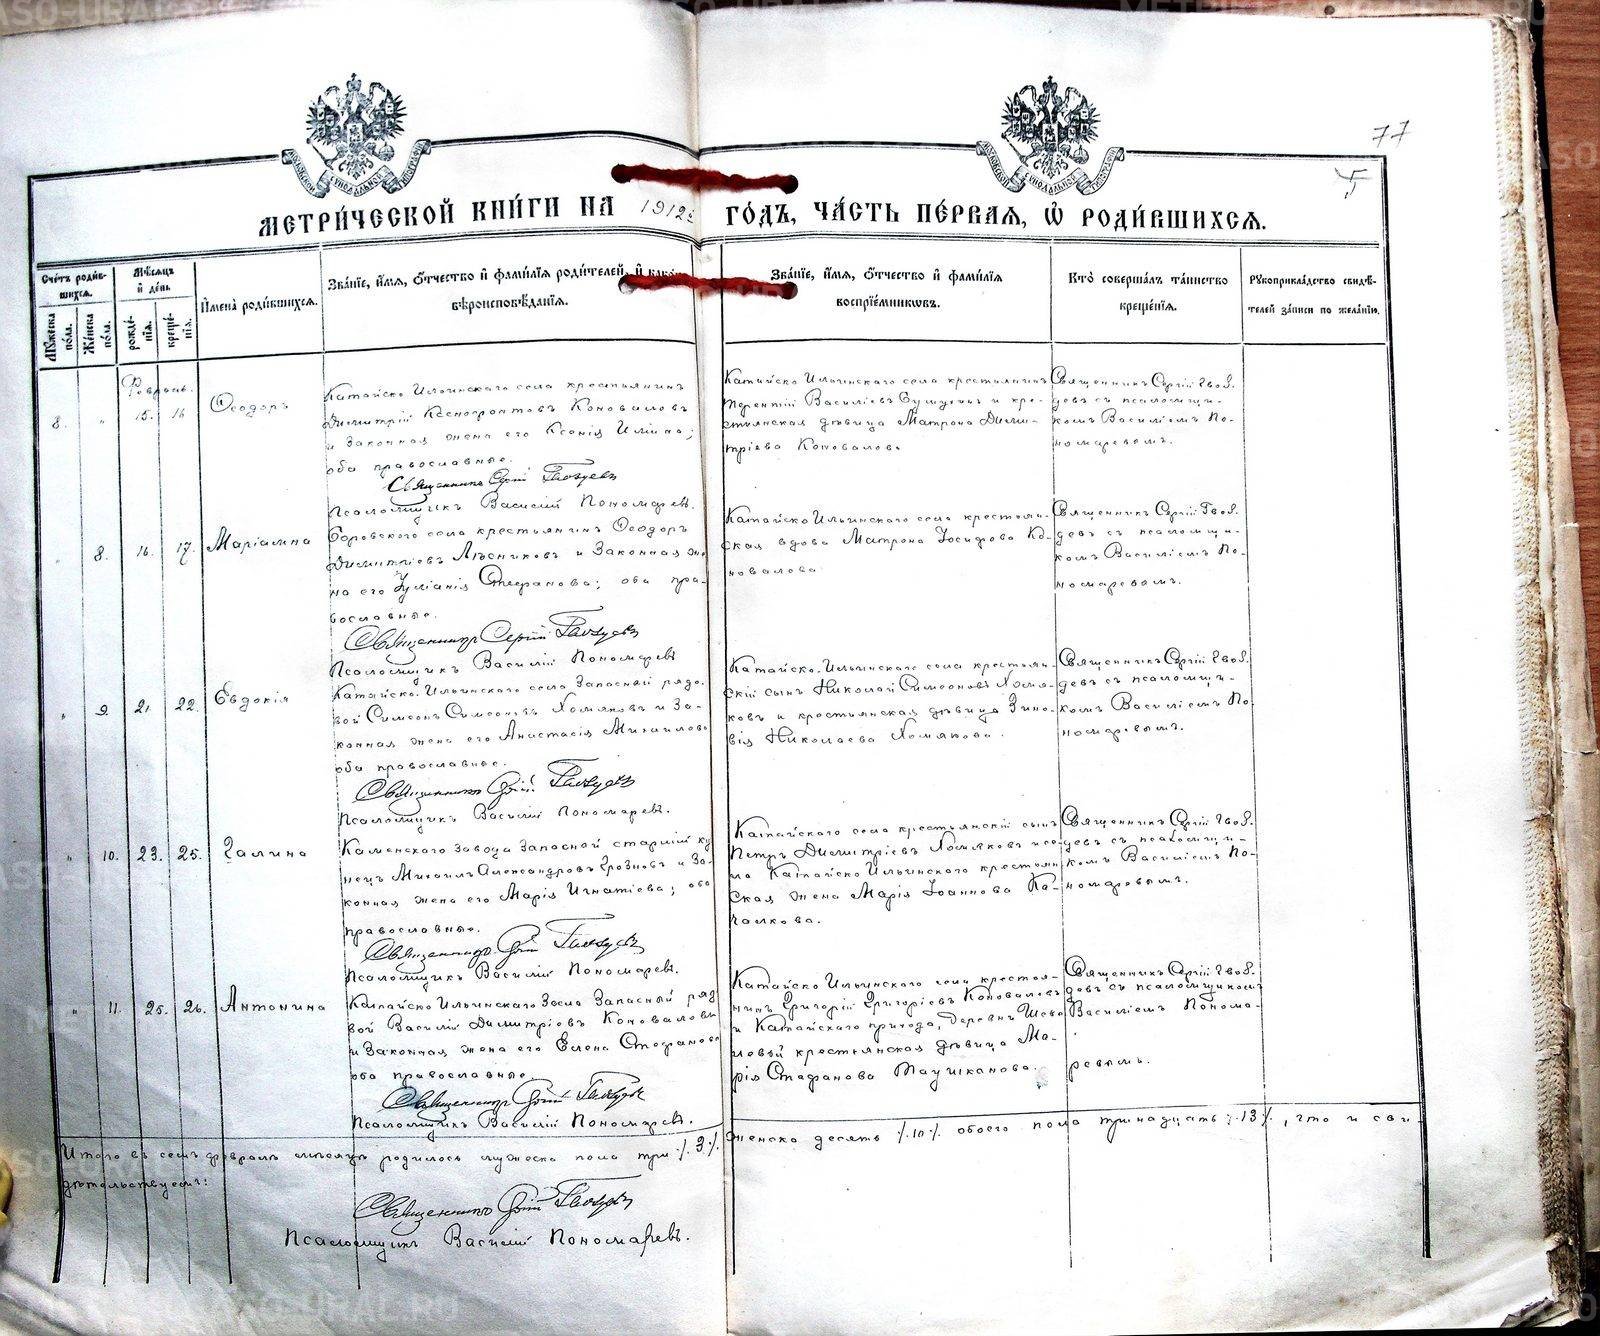 77
5
МОСКОВСКОЙ СѴНОДАЛЬНОЙ ТИПОГРАФІИ
МОСКОВСКОЙ СѴНОДАЛЬНОЙ ТИПОГРАФІИ
МЕТРИ́ЧЕСКОЙ КНИ́ГИ НА 1912 ГО́ДЪ, ЧА́СТЬ ПЕ́РВАЯ, Ѽ РОДИ́ВШИХСЯ.
Сче́тъ роди́вшихся.
Му́жеска по́ла.
Же́нска по́ла.
Мѣ́сяцъ и де́нь
рожде́нія.
креще́нія.
И҆мена̀ роди́вшихся.
Зва́ніе, и҆́мя, ѻ҆́тчество и҆ фами́лія роди́телей, и҆ како
вѣроисповѣ́данія.
Зва́ніе, и҆́мя, ѻ҆́тчество и҆ фами́лія
воспріе́мниковъ.
Кто̀ соверша́лъ та́инство
креще́нія.
Рукоприкла́дство свидѣ́-
телей за́писи по жела́нію.
Февраль.
8. " 15. 16 Ѳеодоръ
Катайско Ильинскаго села крестьянинъ
Димитрій Ксенофонтовъ Коноваловъ
и законная жена его Ксенія Ильина;
оба православные.
Священникъ Сергій Гвоздевъ
Псаломщикъ Василій Пономаревъ.
Катайско Ильинскаго села крестьянинъ
Терентій Василіевъ и кре-
стьянская дѣвица Матрона Дими-
тріева Коновалова
Священникъ Сергій Гвоз-
девъ съ псаломщи-
комъ Василіемъ По-
номаревымъ.
" 8. 16. 17. Маріамна
Боровского села крестьянинъ Ѳеодоръ
Димитріевъ Лѣсниковъ и законная же
на его Іуліанія Стефанова; оба пра-
вославные.
Священникъ Сергій Гвоздевъ
Псаломщикъ Василій Пономаревъ
Катайско Ильинскаго села крестьян-
ская вдова Матрона Іосифова Ко-
новалова
Священникъ Сергій Гвоз-
девъ съ псаломщи-
комъ Василіемъ По-
номаревымъ.
" 9. 21. 22. Евдокія
Катайско-Ильинскаго села запасный рядо-
вой Симеонъ Симеоновъ Хомяковъ и за-
конная жена его Анастасія Михаилова
оба православные.
Священникъ Сергій Гвоздевъ
Псаломщикъ Василій Пономаревъ.
Катайско-Ильинскаго села крестьян-
скій сынъ Николай Симеоновъ Хомя-
ковъ и крестьянская дѣвица Зино-
вія Николаева Хомякова.
Священникъ Сергій Гвоз-
девъ съ псаломщи-
комъ Василіемъ По
номаревымъ.
" 10. 23. 25. Галина
Каменскаго завода запасной старшій ку
нецъ Михаилъ Александровъ Грозновъ и за-
конная жена его Марія Игнатіева; оба
православные.
Священникъ Сергій Гвоздевъ
Псаломщикъ Василій Пономаревъ.
Катайскаго села крестьянскій сынъ
Петръ Димитріевъ Хомяковъ и се-
ла Катайско Ильинского крестьян
ская жена Марія Іоаннова Ка-
чалкова.
Священникъ Сергій Гвоз-
девъ съ псаломщи-
комъ Василіемъ По-
номаревымъ.
" 11. 25. 26. Антонина
Катайско Ильинскаго села запасный рядо
вой Василій Димитріевъ Коноваловъ
и законная жена его Елена Стефанова
оба православные.
Священникъ Сергій Гвоздевъ
Псаломщикъ Василій Пономаревъ.
Катайско Ильинского села крестья-
нинъ Григорій Григоріевъ Коноваловъ
и Катайскаго прихода, деревни
крестьянская дѣвица Ма-
рія Стафанова
Священникъ Сергій Гвоз-
девъ съ псаломщикомъ
Василіемъ Понома-
ревымъ.
Итого въ семъ февралѣ мѣсяцѣ родилось мужеска пола три ./.3./. женска десять ./.10./. обоего пола тринадцать ./.13./., что и сви-
дѣтельствуемъ:
Священникъ Сергій Гвоздевъ
Псаломщикъ Василій Пономаревъ.